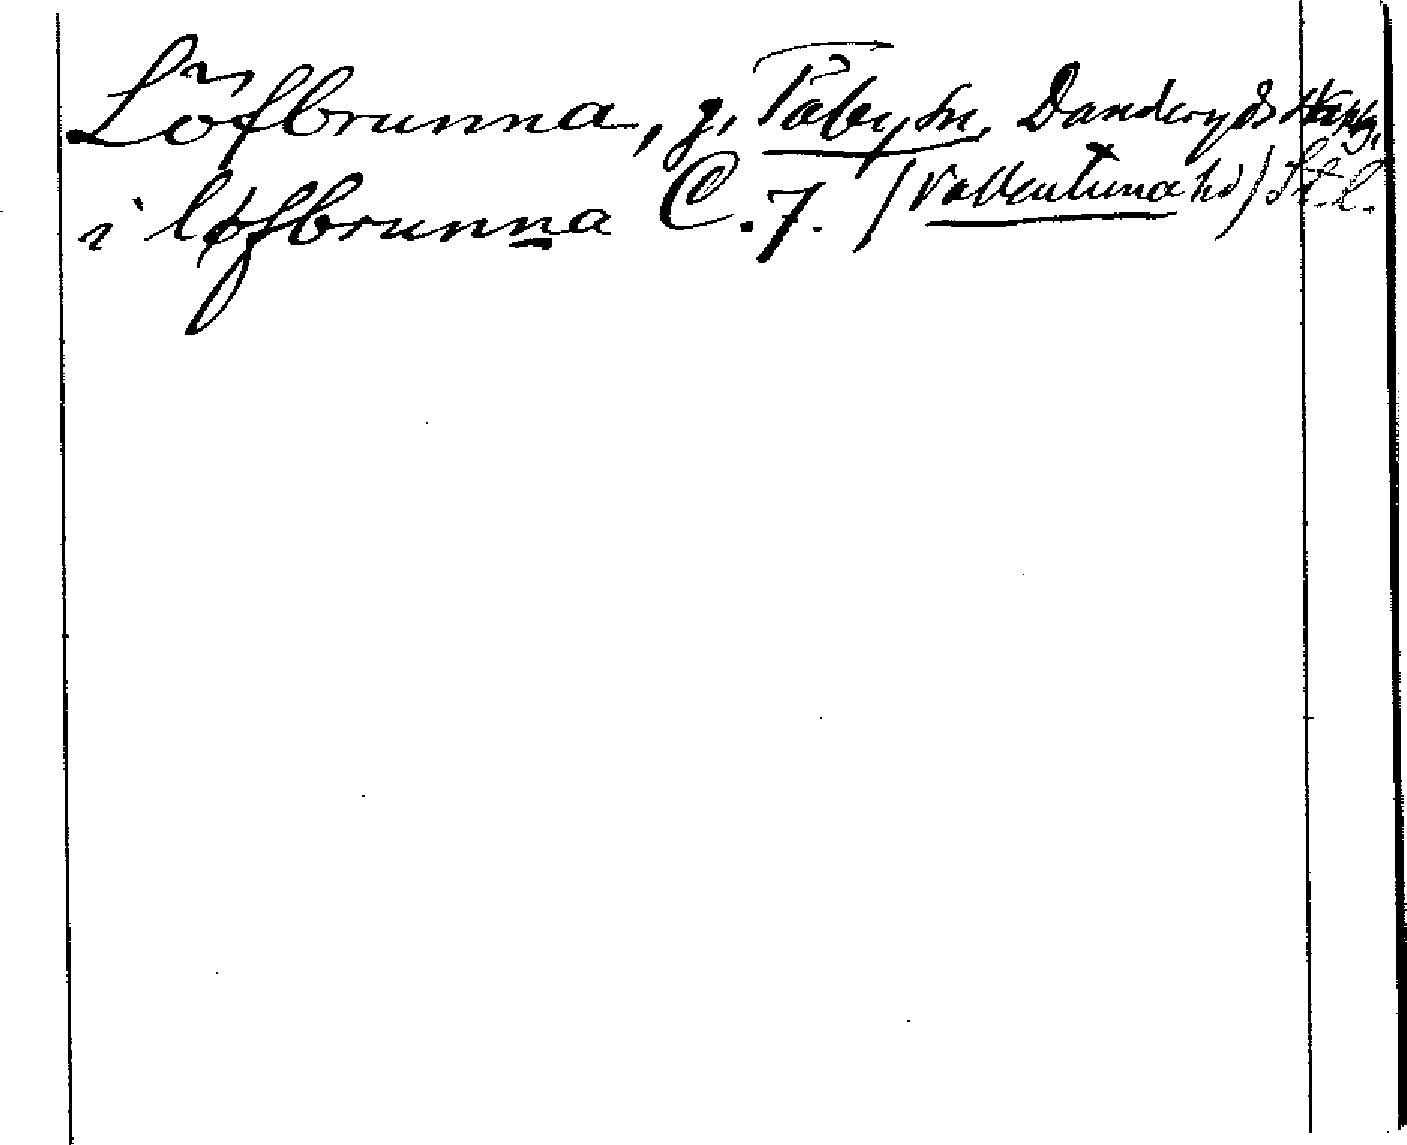 Löfbrunna, g, Täby sn, Danderyds
i løfbrunna C. 7. (Vallentuna hd) St. l.